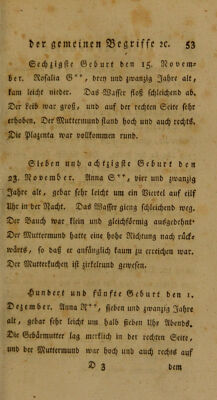 der gemeinen Begriffe ꝛc. 53
Sechzigste Geburt den 15. Novem-
ber. Rosalia G**, drey und zwanzig Jahre alt,
kam leicht nieder. Das Wasser floß schleichend ab.
Der Leib war groß, und auf der rechten Seite sehr
erhoben. Der Muttermund stand hoch und auch rechts.
Die Plazenta war vollkommen rund.
Sieben und achtzigste Geburt den
23. November. Anna S**, vier und zwanzig
Jahre alt, gebar sehr leicht um ein Viertel auf eilf
Uhr in der Nacht. Das Wasser gieng schleichend weg.
Der Bauch war klein und gleichförmig ausgedehnt.
Der Muttermund hatte eine hohe Richtung nach rück-
wärts, so daß er anfänglich kaum zu erreichen war.
Der Mutterkuchen ist zirkelrund gewesen.
Hundert und fünfte Geburt den 1.
Dezember. Anna R**, sieben und zwanzig Jahre
alt, gebar sehr leicht um halb sieben Uhr Abends.
Die Gebärmutter lag merklich in der rechten Seite,
und der Muttermund war hoch und auch rechts auf
D 3 dem